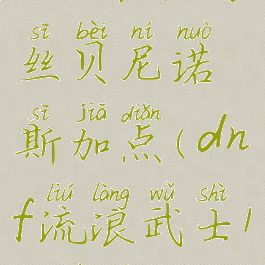 sī bèi ní nuò
丝贝尼诺
sī jiā diǎn
斯加点(dn
liú làng wǔ shì
f流浪武士/